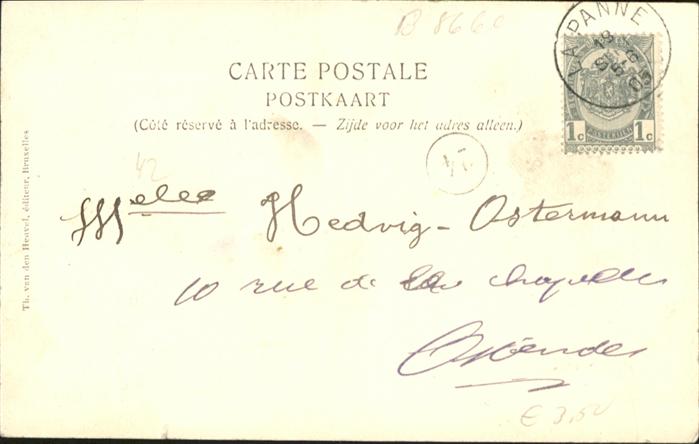 B 8660
LA PANNE
CARTE POSTALE
POSTKAART
(Côté réservé à l'adresse. — Zijde voor het adres alleen.)
1c 1c
42
Melle Hedvig - Ostermann
10 rue de la chapelle
Ostende
€ 3,50
Th. van den Heuvel, éditeur, Bruxelles